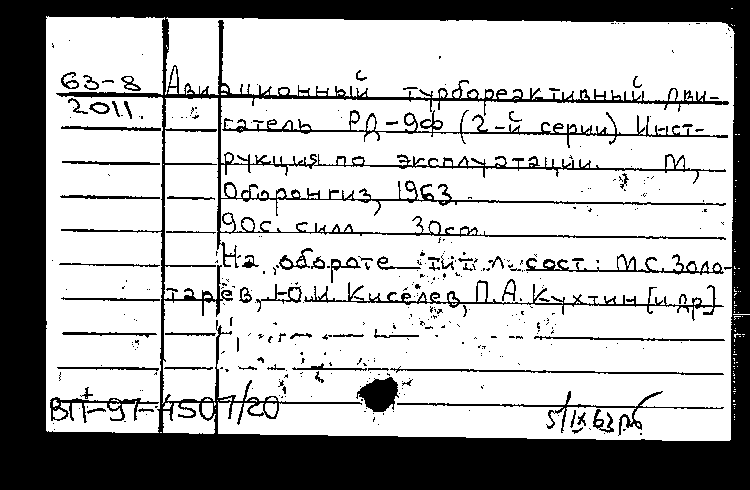 63-8 Авиационный турбореактивный дви-
2011. гатель РД-9Ф (2-й серии). Инст-
рукция по эксплуатации. М,
Оборонгиз, 1963.
90с. с илл. 30см.
На обороте тит. л. сост.: М.С. Золо-
тарев, Ю.И. Киселев, П.А. Кухтин [и др]
ВП-97-4507/20 5/IX 63